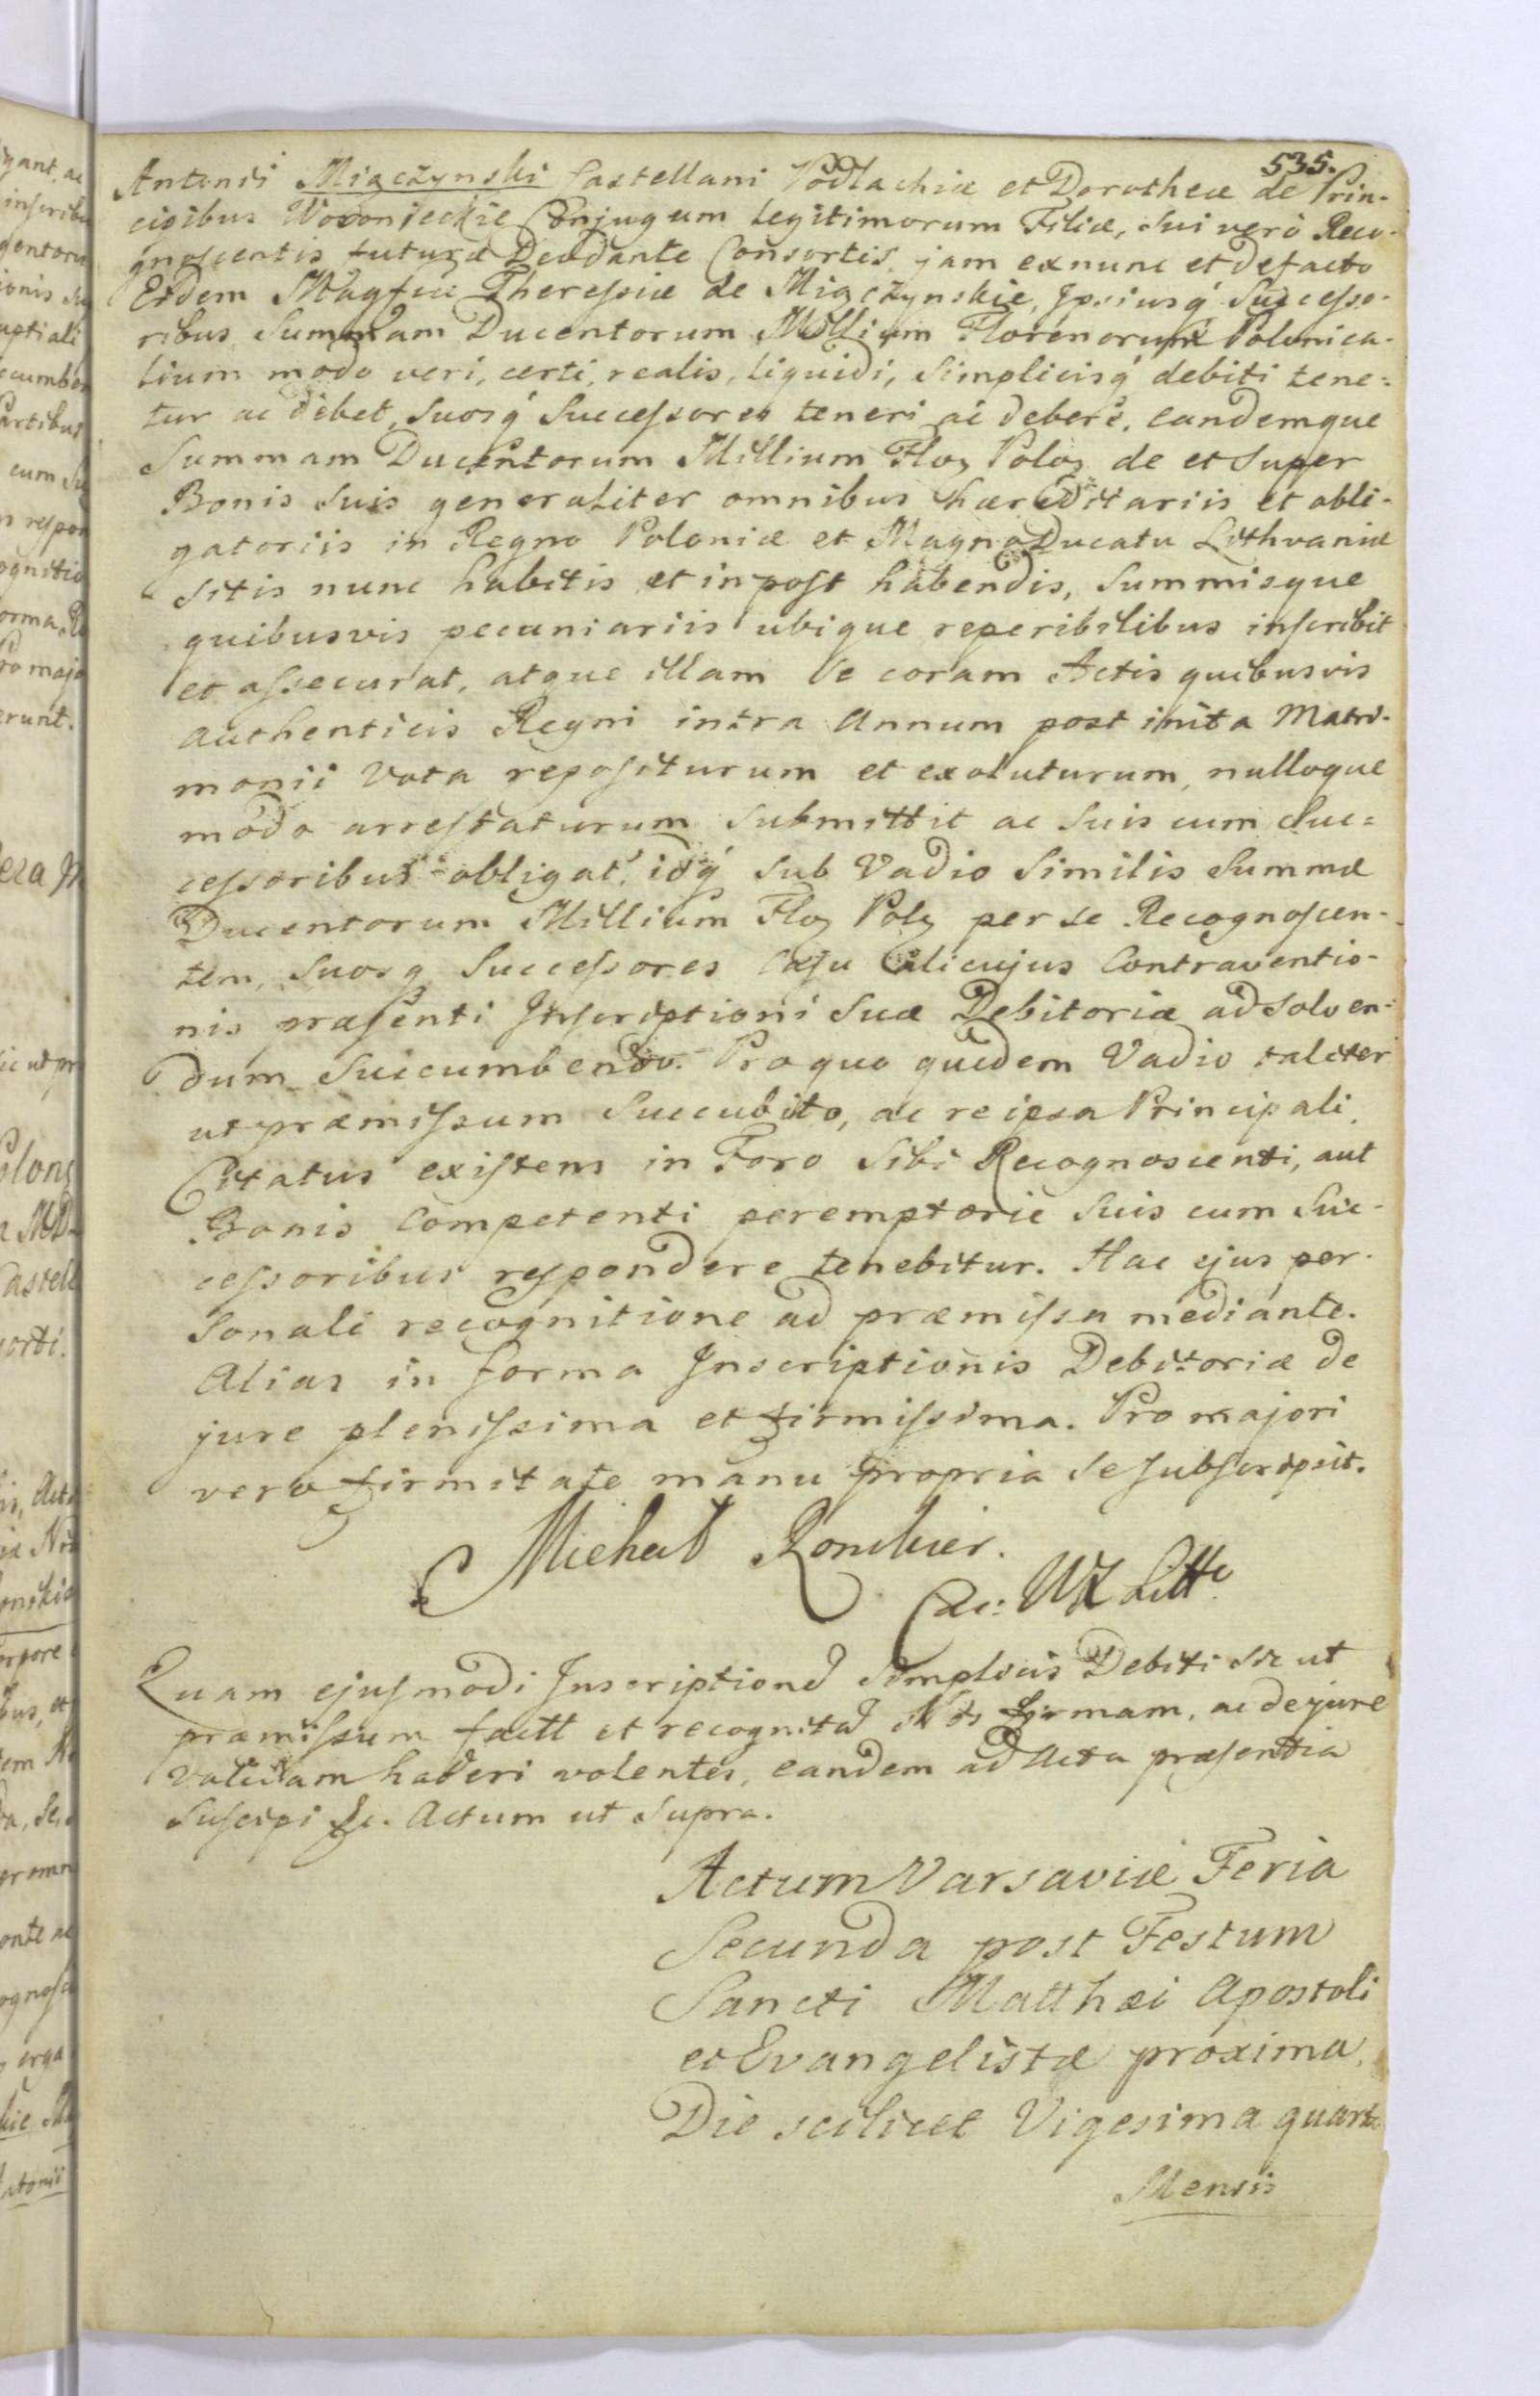 535.
Antonii Miączynski Castellani Podlachiæ et Dorotheæ de Prin-
cipibus Woronieckie Conjugum Legitimorum Filiæ, sui verò Reco-
gnoscentis futuræ Deodante Consortis, jam exnunc et defacto
Eidem Magfcæ Theressiæ de Miączynskie, Ipsiusq́ Successo-
ribus Summam Ducentorum Millium Florenorum Polonica-
lium modo veri, certi, realis, liquidi, Simplicisq́ debiti tene-
tur ac debet, Suosq́ Successores teneri ac debere, eandemque
Summam Ducentorum Millium Floꝝ Poloꝝ de et Super
Bonis Suis generaliter omnibus hæreditariis et obli-
gatoriis in Regno Poloniæ et Magno Ducatu Lithvaniæ
sitis nunc habitis et inpost habendis, Summisque
quibusvis pecuniariis ubique reperibilibus inscribit
et assecurat, atque illam Se coram Actis quibusvis
Authenticis Regni intra Annum post inita Matri-
monii Vota repositurum et exoluturum, nulloque
modo arrestaturum submittit ac Suis cum Suc=
cessoribus obligat, idq́ sub Vadio Similis Summæ
Ducentorum Millium Floꝝ Polꝝ per se Recognoscen-
tem, Suosq Successores Casu Alicujus Contraventio-
nis præsenti Inscriptioni Suæ Debitoriæ ad Solven-
dum Succumbendo. Pro quo quidem Vadio taliter
ut præmissum Succubito, ac re ipsa Principali,
Citatus existens in Foro Sibi Recognoscenti, aut
Bonis Competenti peremptorie Suis cum Suc-
cessoribus respondere tenebitur. Hac ejus per-
sonali recognitione ad præmissa mediante.
Alias in forma Inscriptionis Debitoriæ de
jure plenissima et firmissima. Pro majori
vero firmitate manu propria se subscripsit.
Michał
WX Litt
Quam ejusmodi Inscriptionē simplicis Debiti sic ut
præmissum factt et recognitā Nos firmam, ac de jure
validam haberi volentes, eandem ad Acta præsentia
Suscipi &c. Actum ut Supra.
Actum Varsaviæ Feria
Secunda post Festum
Sancti Matthæi Apostoli
et Evangelistæ proxima,
Die scilicet Vigesima quarta
Mensis